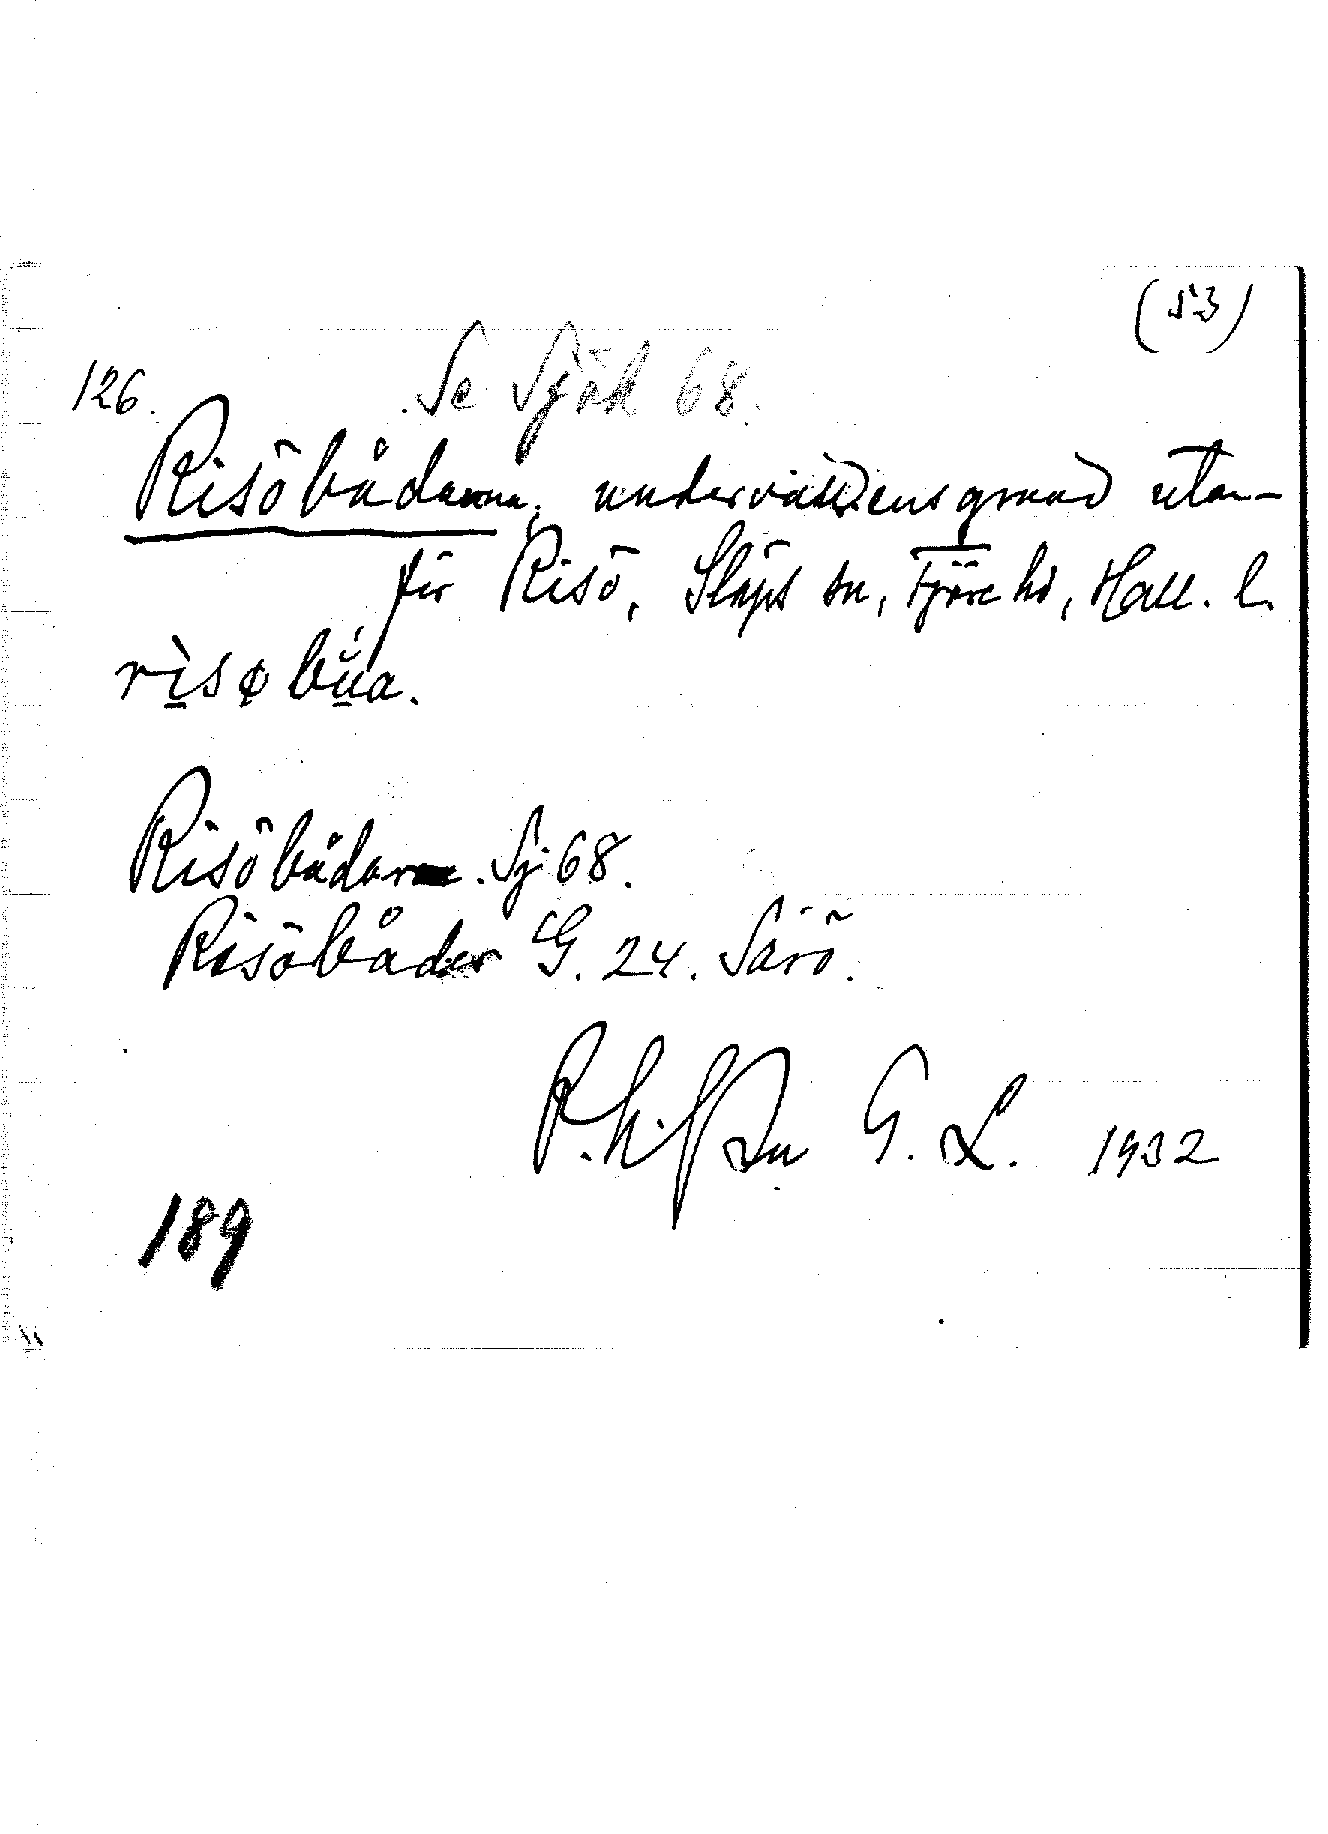 (53)
126. Se Sjök 68.
Risöbådarna, undervattensgrund utan-
för Risö, Släps sn, Fjäre hd, Hall. l.
rìsøbúa.
Risöbådarna. Sj. 68.
Risöbådar G. 24. Särö.
G. L. 1932
189